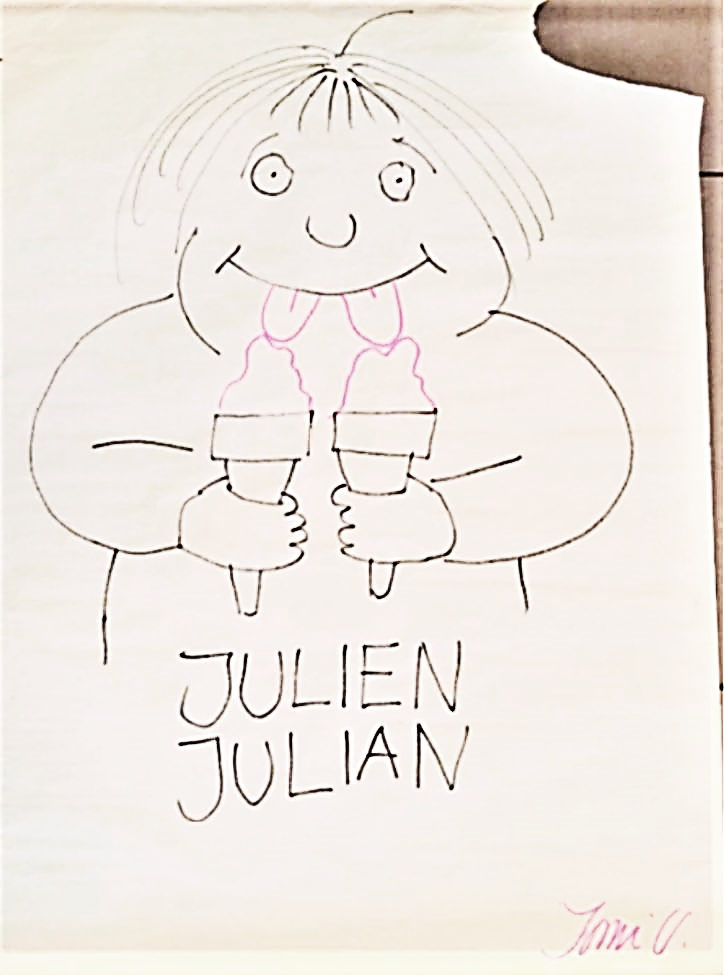 JULIEN
JULIAN
Tomi U.